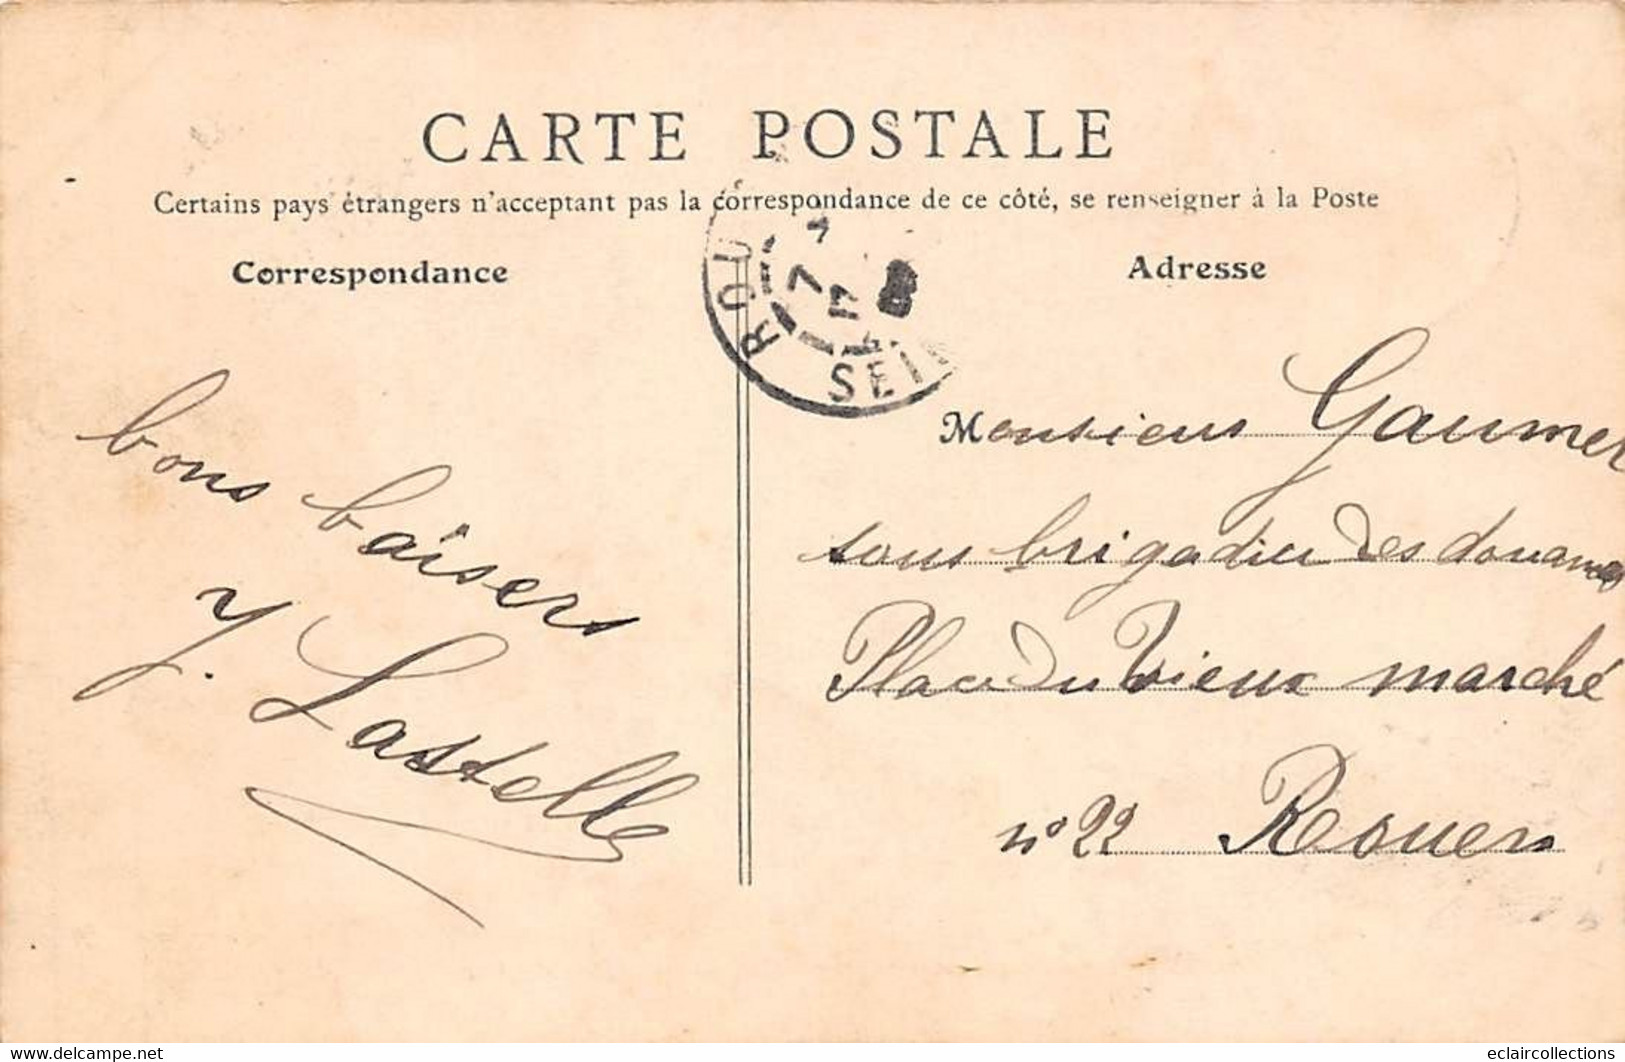 CARTE POSTALE
Certains pays étrangers n'acceptant pas la correspondance de ce côté, se renseigner à la Poste
Correspondance
Adresse
ROU
7
17
4
SEI
bons baisers
Y. Lastelle
Monsieur Gaumer
sous brigadier des douanes
Place du Vieux marché
n° 22 Rouen
delcampe.net
eclaircollections